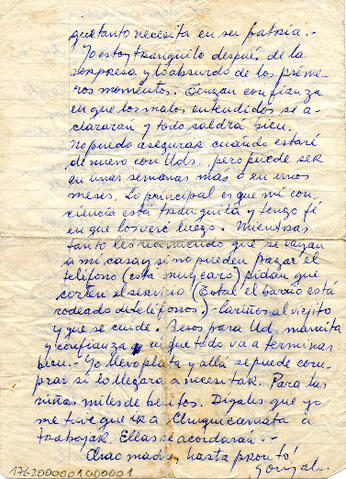 que tanto necesita en su patria.-
Yo estoy tranquilo después de la
sorpresa y lo absurdo de los prime-
ros momentos. Tengan confianza
en que los malos entendidos se a-
clararán y todo saldrá bien.
No puedo asegurar cuando estaré
de nuevo con Uds. pero puede ser
en unas semanas más o en unos
meses. Lo principal es que mi con-
ciencia está tranquila y tengo fé
en que los veré luego. Mientras
tanto les recomiendo que se vayan
a mi casa y si no pueden pagar el
teléfono (está muy caro) pidan que
corten el servicio (Total el barrio está
rodeado de teléfonos).- Cariños al viejito
y que se cuide. Besos para Ud, mamita
y confianza en que todo va a terminar
bien.- Yo llevo plata y allá se puede com-
prar si lo llegara a necesitar. Para las
niñas miles de besitos. Digales que yo
me tuve que ir a Chuquicamata a
trabajar. Ellas se acordarán.-
Chao madre, hasta pronto!
Gonzalo.
1762000001000001